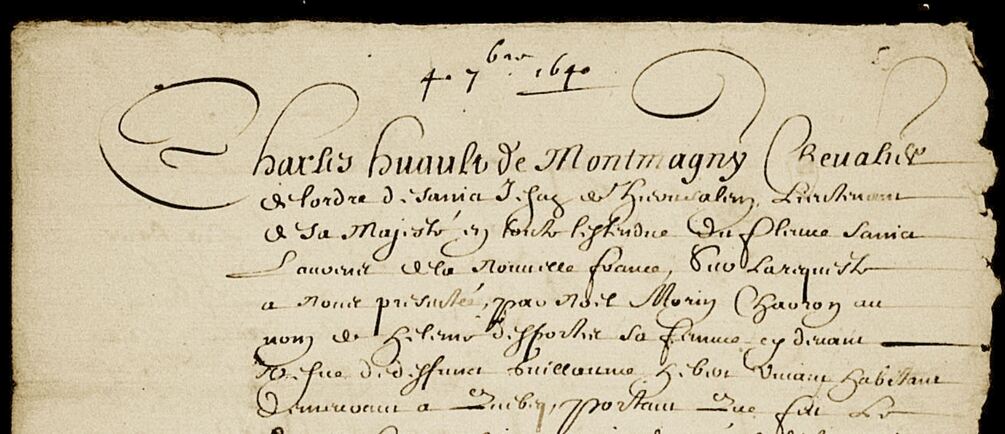 4e 7bre 1640
Charles huault de Montmagny Cheualier
de lordre de sainct Jehan de hierusalem, Lieutenant
de sa Majesté en toute lestendue du fleuue sainct
Laurens de la Nouuelle france, Sur La requeste
a Nous presentée, par Noël Morin Charon au
nom de Helene desportes sa femme cy deuant
Vefue de deffunct Guillaume hebert viuant habitant
demeurant a Quebeq, portant que fut Le